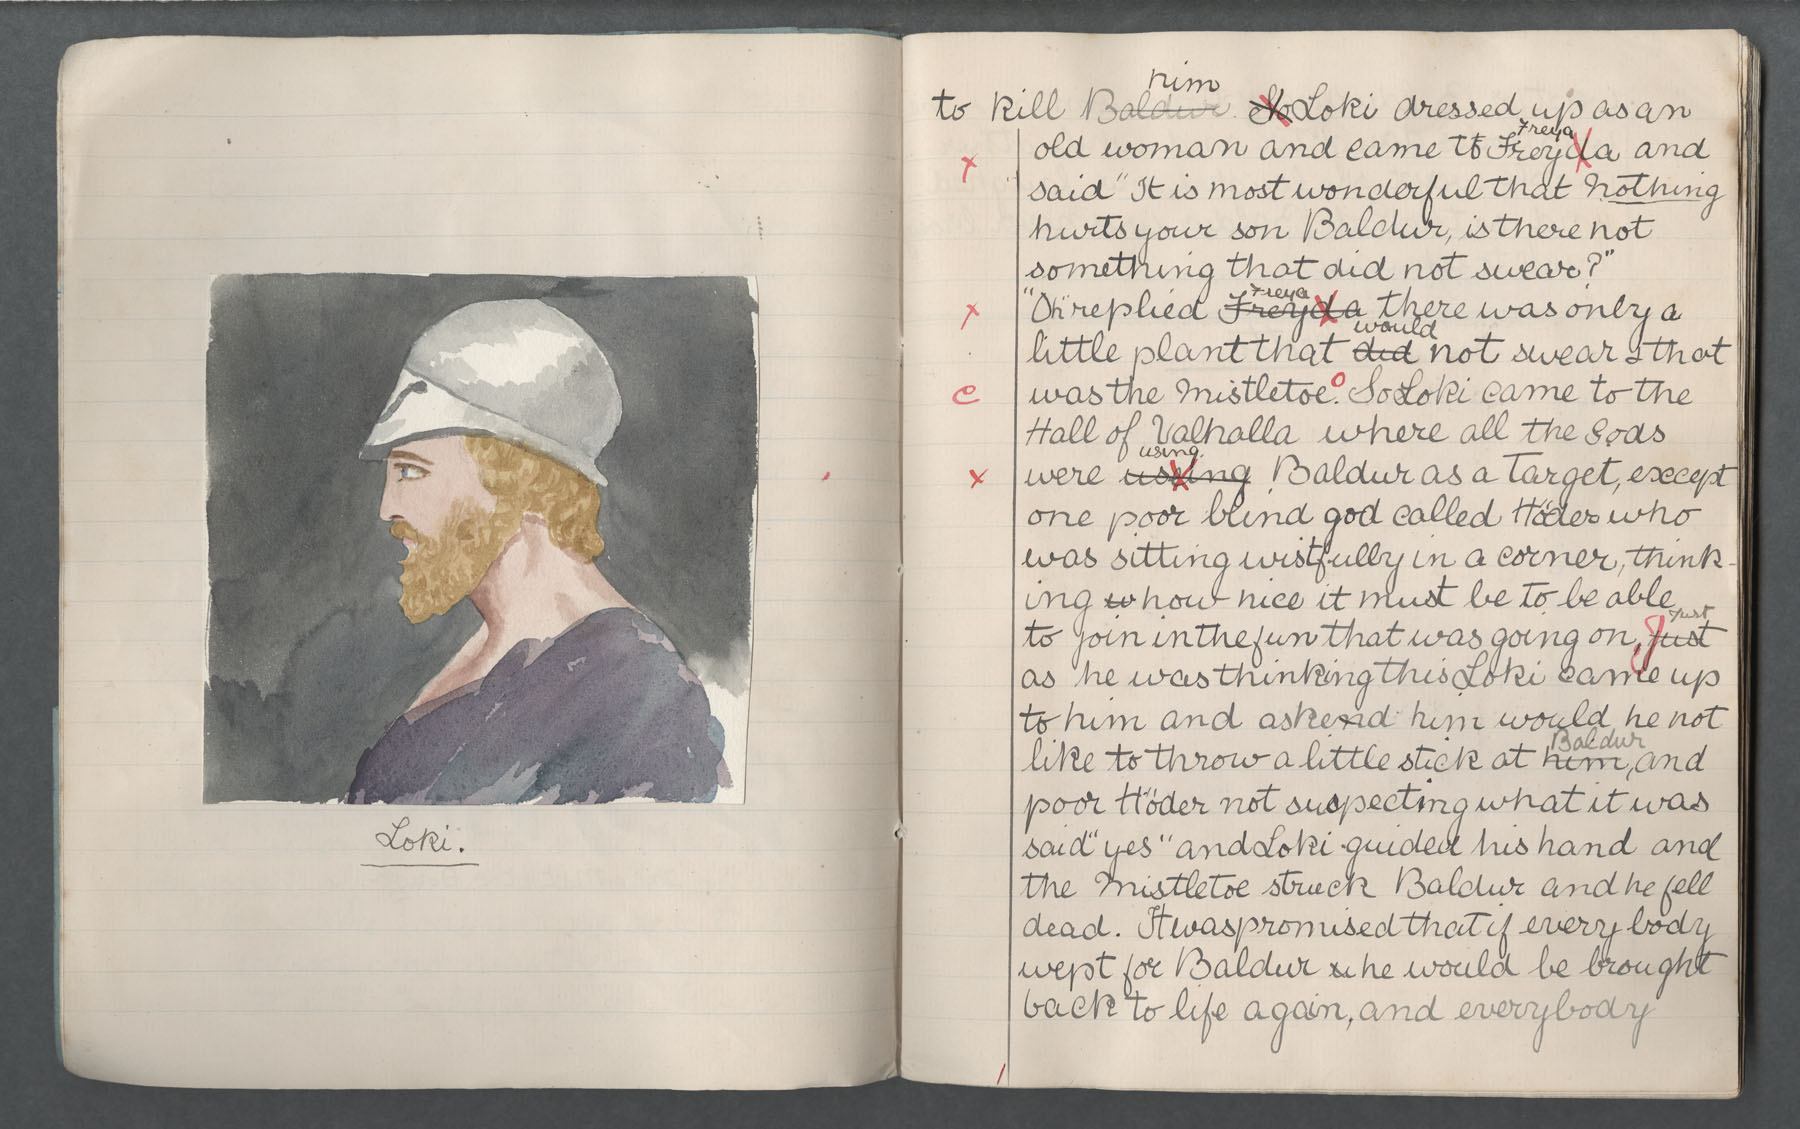 Loki.
him
to kill Baldur. So Loki dressed up as an
Freya
old woman and came to Freyda and
said "It is most wonderful that nothing
hurts your son Baldur, is there not
something that did not swear?"
Freya
"Oh" replied Freyda there was only a
would
little plant that did not swear & that
was the Mistletoe. So Loki came to the
Hall of Valhalla where all the Gods
using
were ussing Baldur as a Target, except
one poor blind god called Höder who
was sitting wistfully in a corner, think-
ing w how nice it must be to be able
Just
to join in the fun that was going on, just
as he was thinking this Loki came up
to him and askend him would he not
Baldur
like to throw a little stick at him, and
poor Höder not suspecting what it was
said "yes" and Loki guided his hand and
the Mistletoe struck Baldur and he fell
dead. It was promised that if every body
wept for Baldur he would be brought
back to life again, and everybody